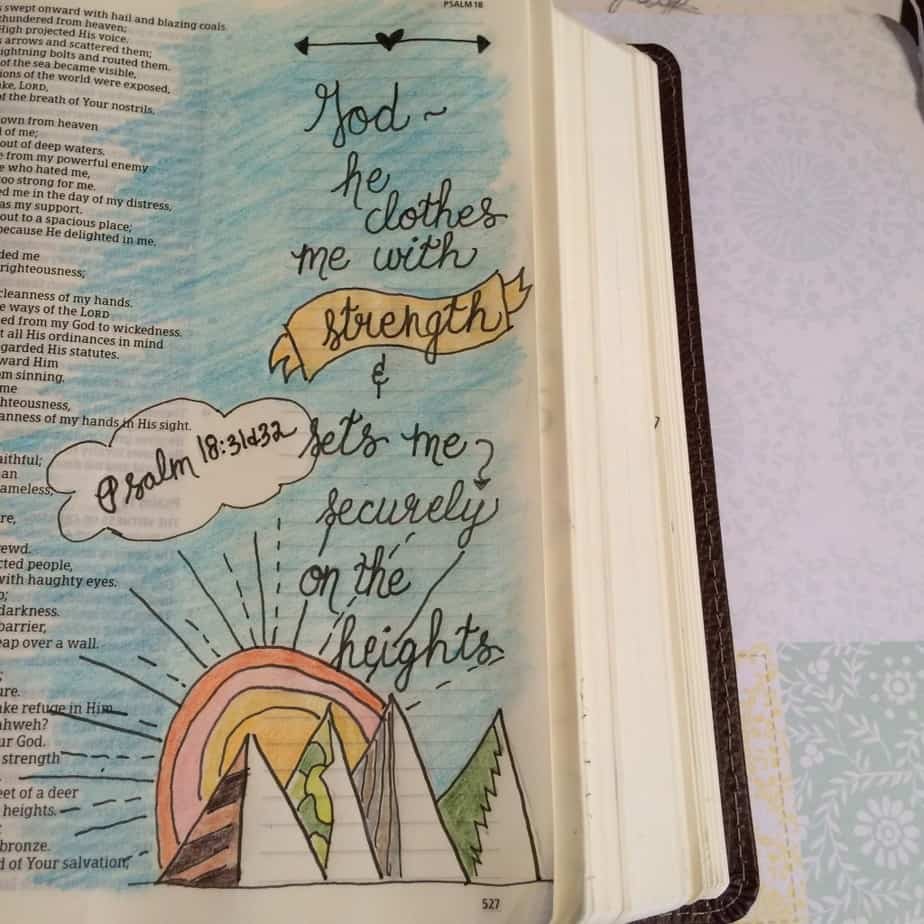 PSALM 18
swept onward with hail and blazing coals.
thundered from heaven;
High projected His voice.
arrows and scattered them;
lightning bolts and routed them.
of the sea became visible,
ions of the world were exposed,
ke, LORD,
of the breath of Your nostrils.
own from heaven
of me;
out of deep waters.
from my powerful enemy
who hated me,
too strong for me.
ed me in the day of my distress,
as my support.
out to a spacious place;
because He delighted in me.
ded me
righteousness;
cleanness of my hands.
ways of the LORD
ed from my God to wickedness.
all His ordinances in mind
garded His statutes.
ward Him
om sinning.
me
hteousness,
anness of my hands in His sight.
aithful;
an
ameless,
re,
ewd.
cted people,
with haughty eyes.
darkness.
barrier,
eap over a wall.
ure.
ake refuge in Him.
ahweh?
ur God.
strength
eet of a deer
heights.
bronze.
d of Your salvation;
God ~
he
clothes
me with
strength
&
sets me
securely
on the
heights
Psalm 18:31d32
527